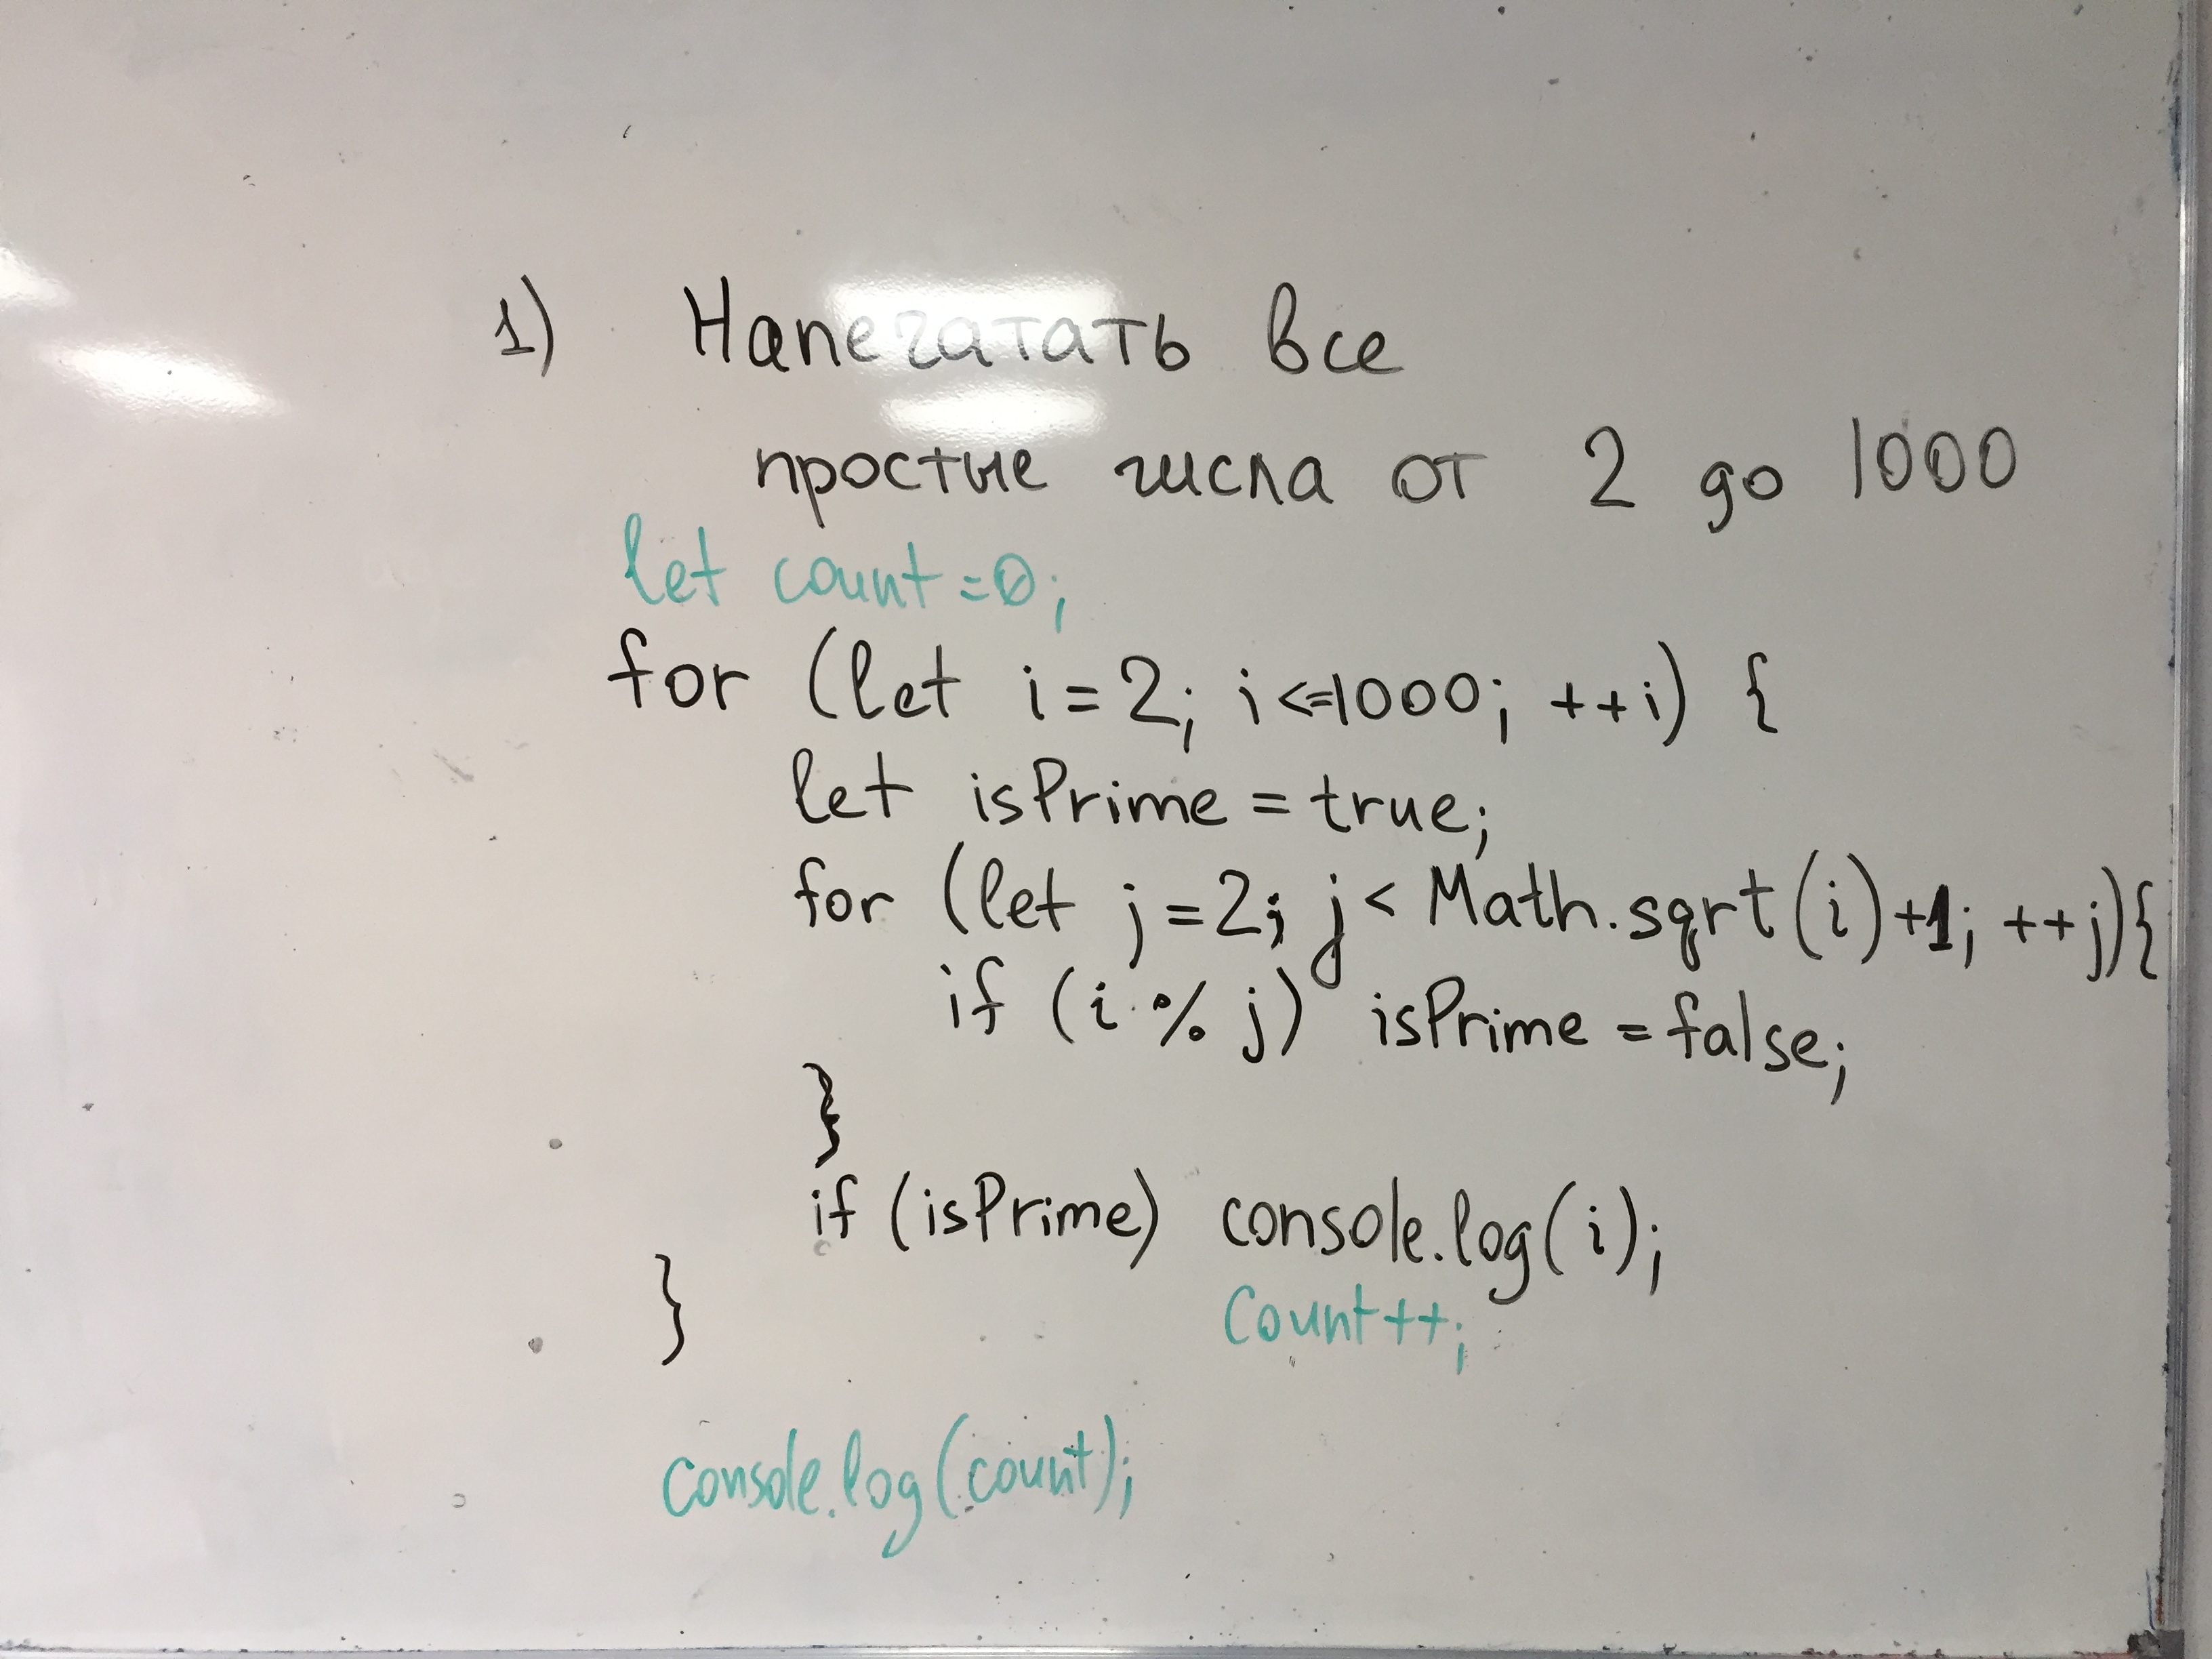 1) Напечатать все
простые числа от 2 до 1000
let count=0;
for (let i=2; i<=1000; ++i) {
let isPrime = true;
for (let j=2; j< Math.sqrt(i)+1; ++j){
if (i % j) isPrime = false;
}
if (isPrime) console.log(i);
}
Count++;
console.log(count);